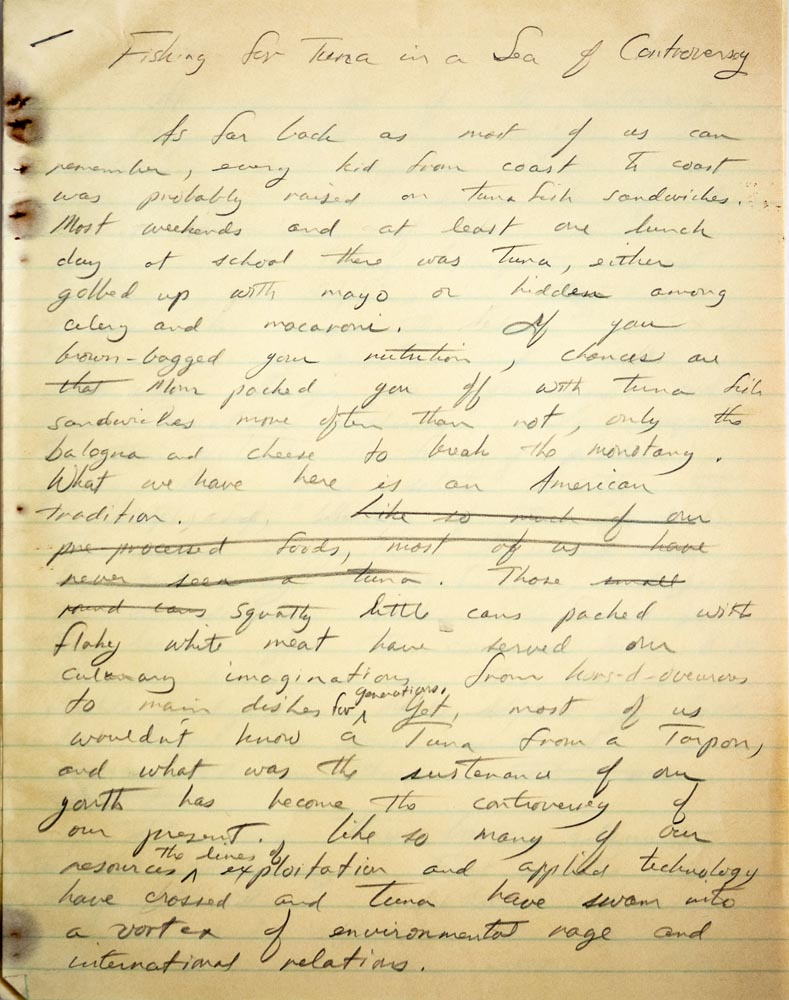 Fishing for Tuna in a Sea of Controversy
As far back as most of us can
remember, every kid from coast to coast
was probably raised on tuna fish sandwiches.
Most weekends and at least one lunch
day at school there was Tuna, either
gobbed up with mayo or hidden among
celery and macaroni. If you
brown-bagged your nutrition, chances are
that Mom packed you off with tuna fish
sandwiches more often than not, only the
balogna and cheese to break the monotany.
What we have here is an American
tradition. Like so much of our
pre-processed foods, most of us have
never seen a tuna. Those small
round cans squatty little cans packed with
flaky white meat have served our
culunary imaginations from hors-d-oveurous
to main dishes for generations. Yet, most of us
wouldn't know a Tuna from a Tarpon,
and what was the sustenance of our
youth has become the controversy of
our present. Like so many of our
resources the lines of exploitation and applied technology
have crossed and tuna have swam into
a vortex of environmental rage and
international relations.